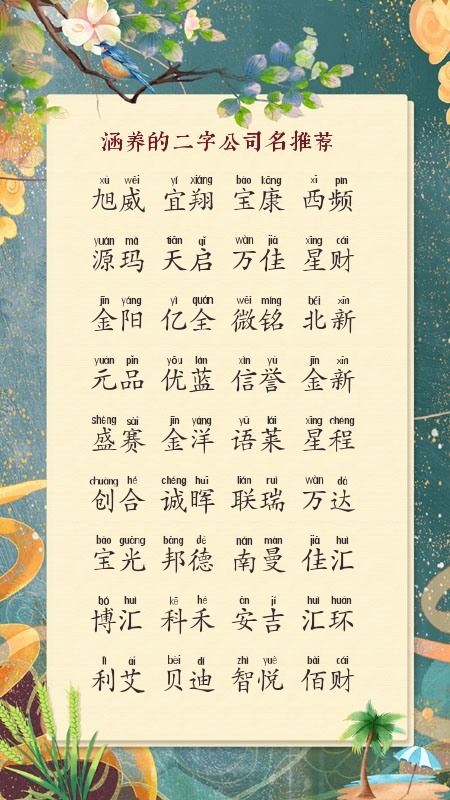 涵养的二字公司名推荐
xù wēi yí xiáng bǎo kāng xī pín
旭威 宜翔 宝康 西频
yuán mǎ tiān qǐ wàn jiā xīng cái
源玛 天启 万佳 星财
jīn yáng yì quán wēi míng běi xīn
金阳 亿全 微铭 北新
yuán pǐn yōu lán xìn yù jīn xīn
元品 优蓝 信誉 金新
shèng sài jīn yáng yǔ lái xīng chéng
盛赛 金洋 语莱 星程
chuàng hé chéng huī lián ruì wàn dá
创合 诚晖 联瑞 万达
bǎo guāng bāng dé nán màn jiā huì
宝光 邦德 南曼 佳汇
bó huì kē hé ān jí huì huán
博汇 科禾 安吉 汇环
lì ài bèi dí zhì yuè bǎi cái
利艾 贝迪 智悦 佰财